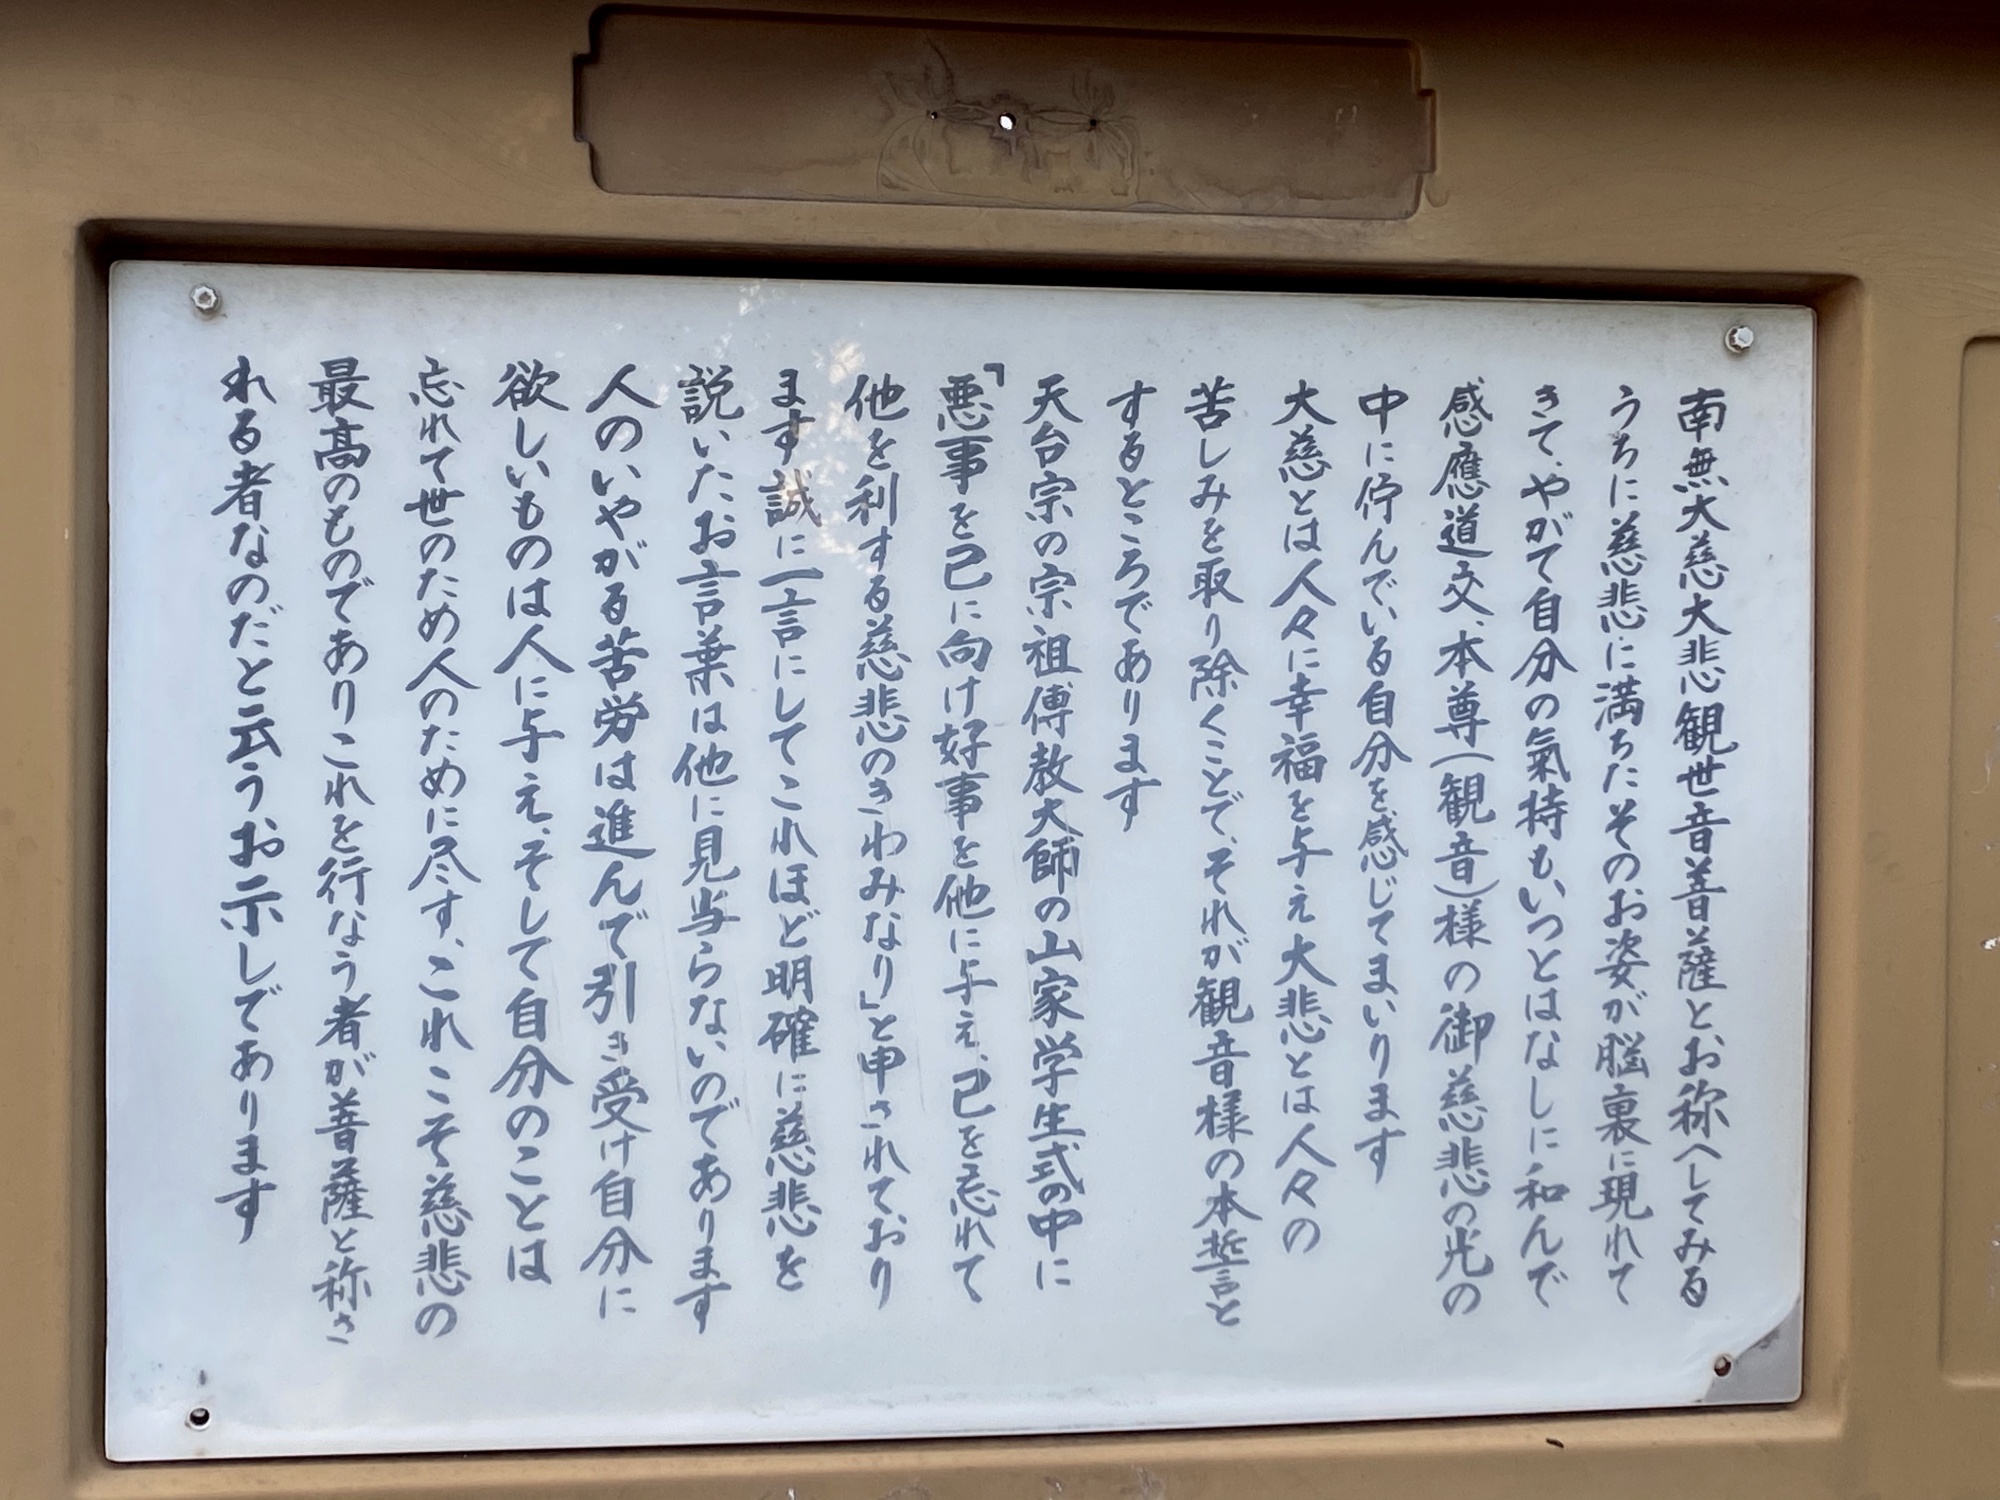 南無大慈大悲観世音菩薩と、お称へしてみる
うちに慈悲に満ちたそのお姿が脳裏に現れて
きて、やがて自分の氣持もいつとはなしに和んで
感應道交、本尊(観音)様の御慈悲の光の
中に佇んでいる自分を感じてまいります
大慈とは人々に幸福を与え大悲とは人々の
苦しみを取り除くことで、それが観音様の本誓と
するところであります
天台宗の宗祖傳教大師の山家学生式の中に
「悪事を己に向け好事を他に与え、己を忘れて
他を利する慈悲のきわみなり」と申されており
ます誠に一言にしてこれほど明確に慈悲を
説いたお言葉は他に見当らないのであります
人のいやがる苦労は進んで引き受け自分に
欲しいものは人に与え、そして自分のことは
忘れて世のため人のために尽す、これこそ慈悲の
最高のものでありこれを行なう者が菩薩と称さ
れる者なのだと云うお示しであります